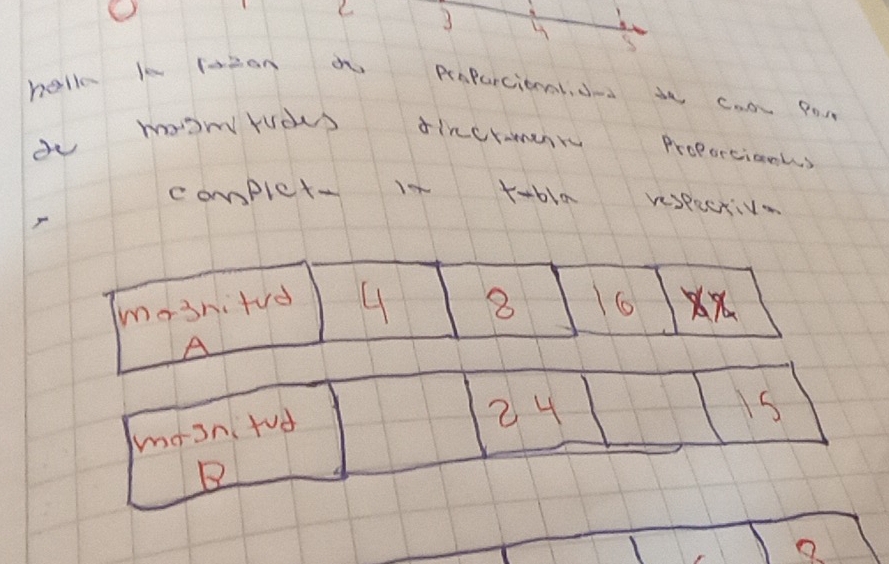 0 1 2 3 4 5
halla la razon de proporcionalidad de cada par
de magnitudes directamente Proporcionales
completa la tabla respectiva
magnitud A 4 8 16
magnitud B 24 15
8